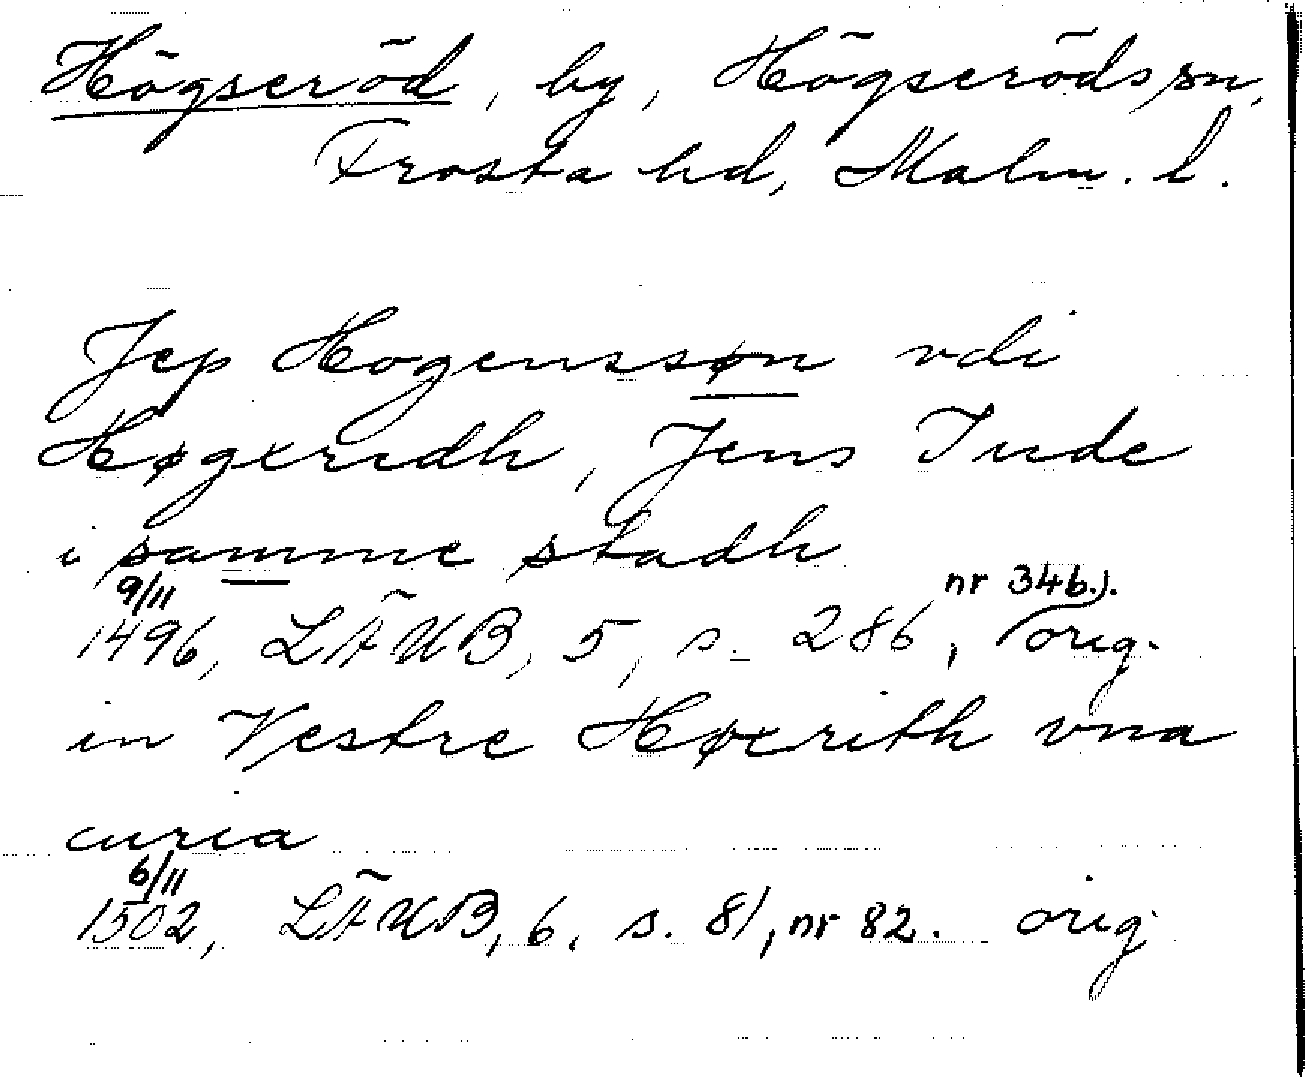 Högseröd, by, Högseröds sn,
Frosta hd, Malm. l.
Jep Hogenssøn vdi
Høgxeridh, Jens Iude
i samme stadh
9/11 nr 346.).
1496, LÄUB, 5, s. 286, orig.
in Vestre Høxerith vna
curia
6/11
1502, LÄUB, 6, s. 81, nr 82. orig